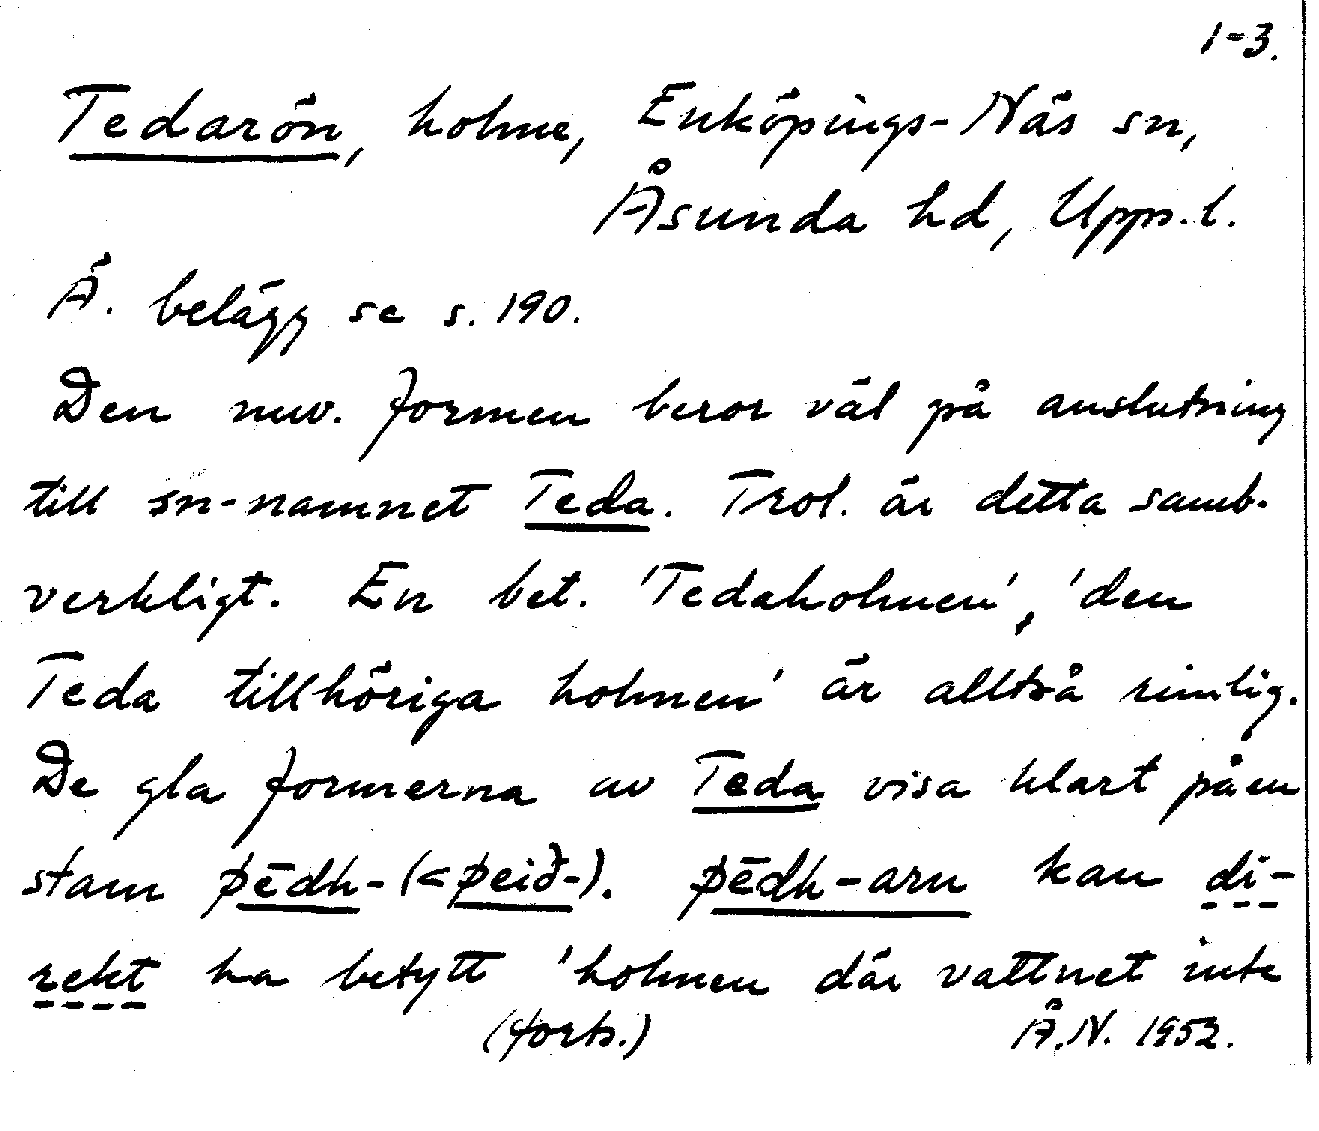 1-3.
Tedarön, holme, Enköpings-Näs sn,
Åsunda hd, Upps. l.
Ä. belägg se s. 190.
Den nuv. formen beror väl på anslutning
till sn-namnet Teda. Trol. är detta samb.
verkligt. En bet. 'Tedaholmen', 'den
Teda tillhöriga holmen' är alltså rimlig.
De gla formerna av Teda visa klart på en
stam þēdh- (< þeið-). þēdh-arn kan di-
rekt ha betytt 'holmen där vattnet inte
(forts.) Å.N. 1952.